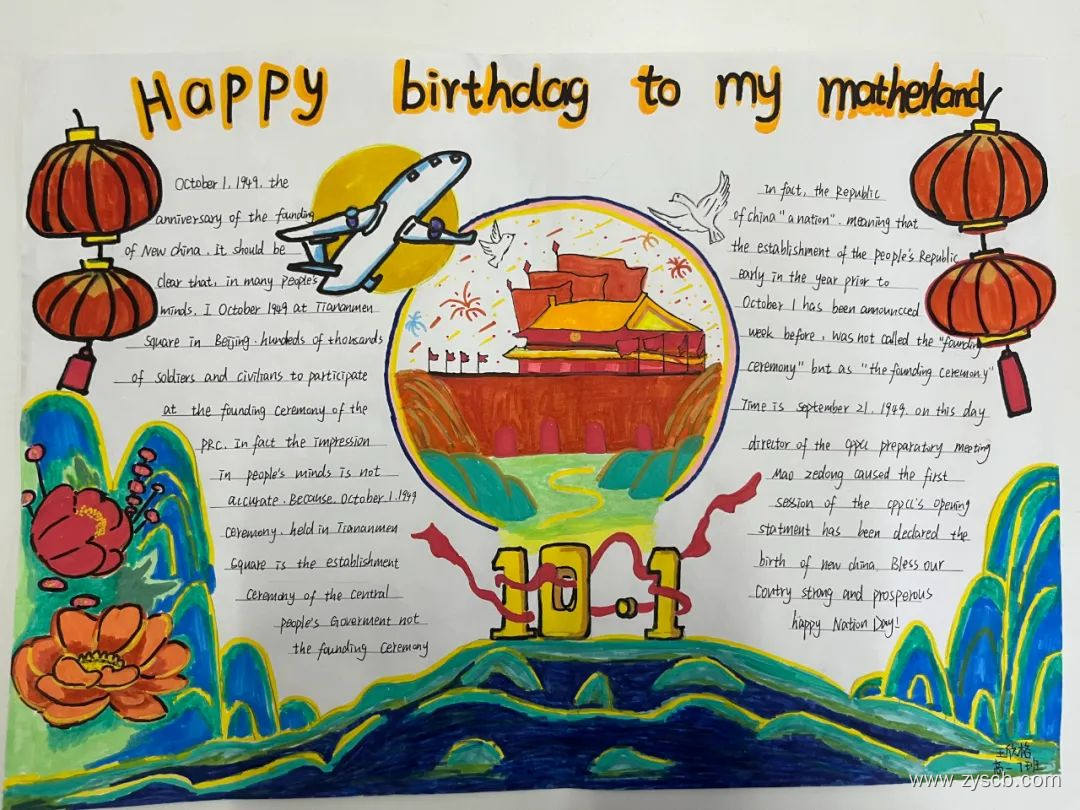 Happy birthday to my matherland
October 1, 1949, the
anniversary of the founding
of New china, It should be
clear that, in many people's
minds, 1 October 1949 at Tiananmen
Square in Beijing, hundeds of thousands
of soldiers and civilians to participate
at the founding ceremony of the
PRC. In fact the impression
in people's minds is not
accurate. Because, October 1, 1949
ceremony, held in Tiananmen
Square is the establishment
ceremony of the central
people's Goverment not
the founding ceremony
In fact, the Republic
of China "a nation", meaning that
the establishment of the people's Republic
early in the year prior to
October 1 has been announced
week before, was not called the "founding
ceremony" but as "the founding ceremony"
Time is September 21, 1949, on this day
director of the cppcc preparatory meeting
Mao zedong caused the first
session of the cppcc's opening
statment has been declared the
birth of new china. Bless our
contry strong and prosperous
happy Nation Day!
10.1
王欣格
高一7班
www.zyscb.com